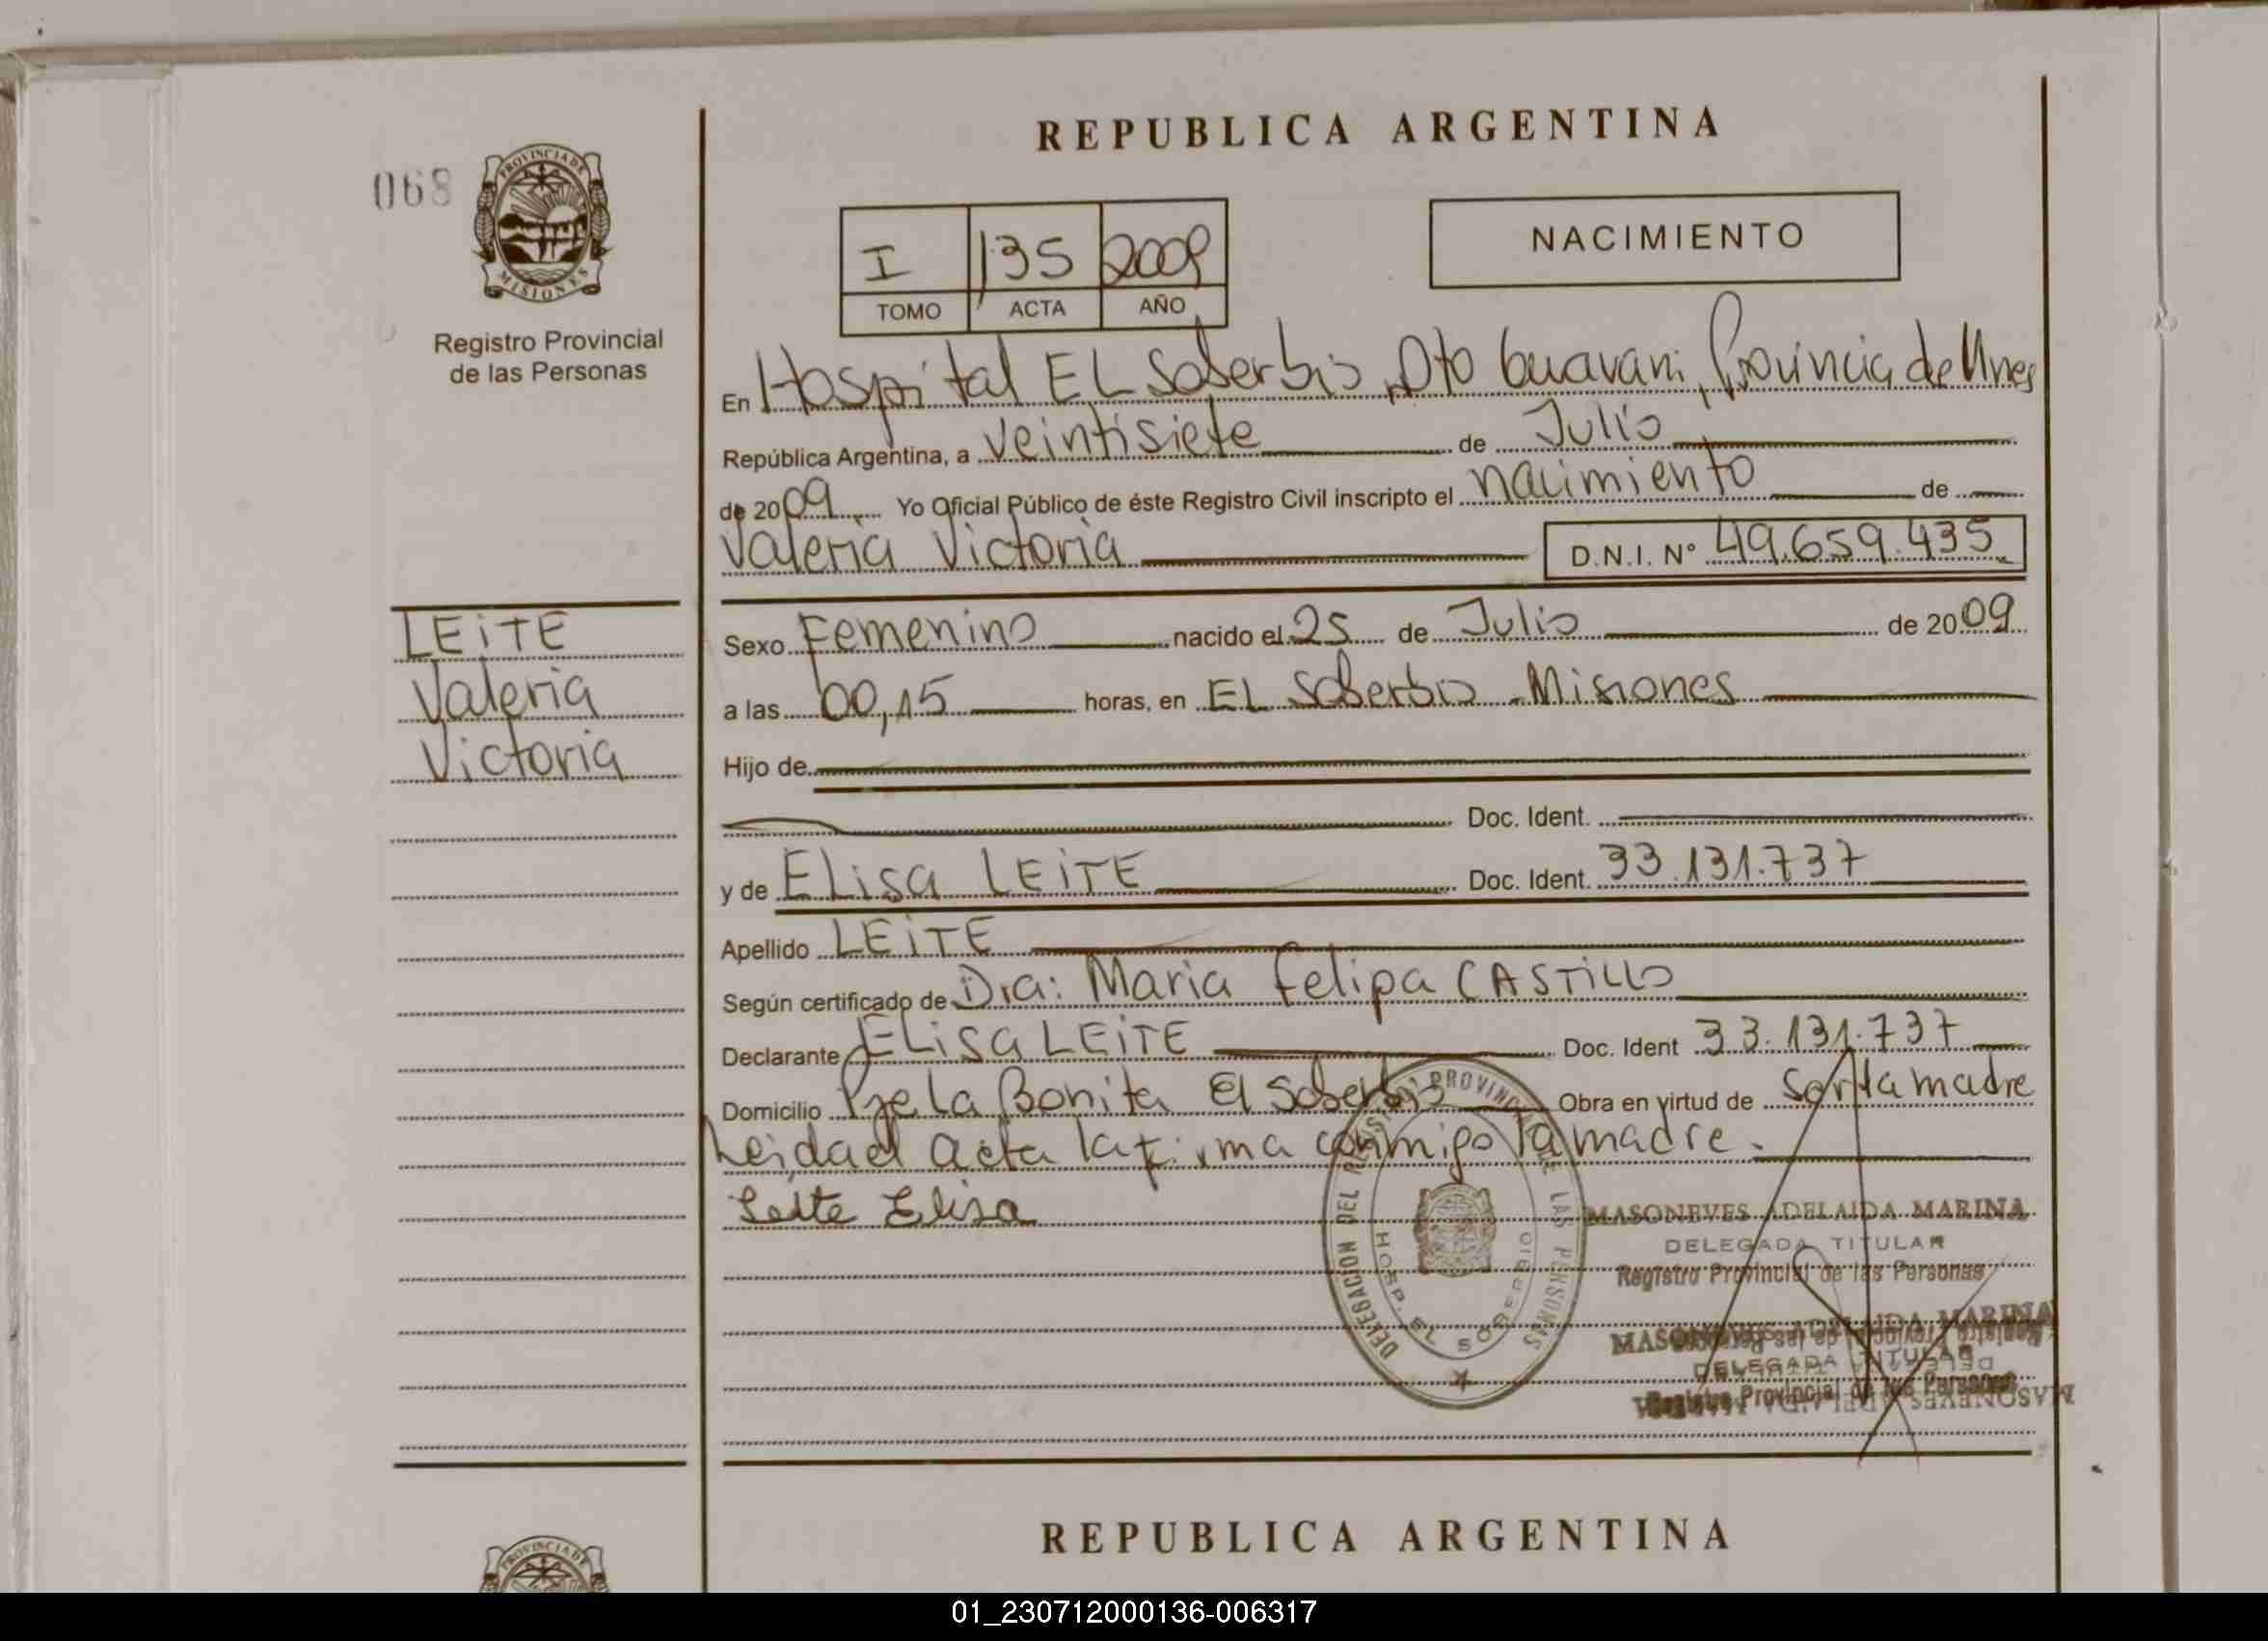 REPUBLICA ARGENTINA
068
PROVINCIA DE
MISIONES
Registro Provincial
de las Personas
I 135 2009
TOMO ACTA AÑO
NACIMIENTO
En Hospital EL Soberbio, Dto Guarani, Provincia de Mnes
República Argentina, a veintisiete de Julio
de 2009 Yo Oficial Público de éste Registro Civil inscripto el nacimiento de
Valeria Victoria D.N.I. Nº 49.659.435
LEiTE
Valeria
Victoria
Sexo Femenino nacido el 25 de Julio de 2009
a las 00,15 horas, en EL Soberbio - Misiones
Hijo de
Doc. Ident.
y de ELisa LEiTE Doc. Ident. 33.131.737
Apellido LEiTE
Según certificado de Dra: Maria Felipa CASTiLLO
Declarante ELisa LEiTE Doc. Ident 33.131.737
Domicilio La Bonita El Soberbio Obra en virtud de ser la madre
Leida el acta la firma conmigo la madre.
Leite Elisa
DELEGACION DEL REGISTRO PROVINCIAL DE LAS PERSONAS
HOSP. EL SOBERBIO
MASONEVES ADELAIDA MARINA
DELEGADA TITULAR
Registro Provincial de las Personas
MASONEVES ADELAIDA MARINA
DELEGADA TITULAR
Registro Provincial de las Personas
REPUBLICA ARGENTINA
PROVINCIA DE
01_230712000136-006317